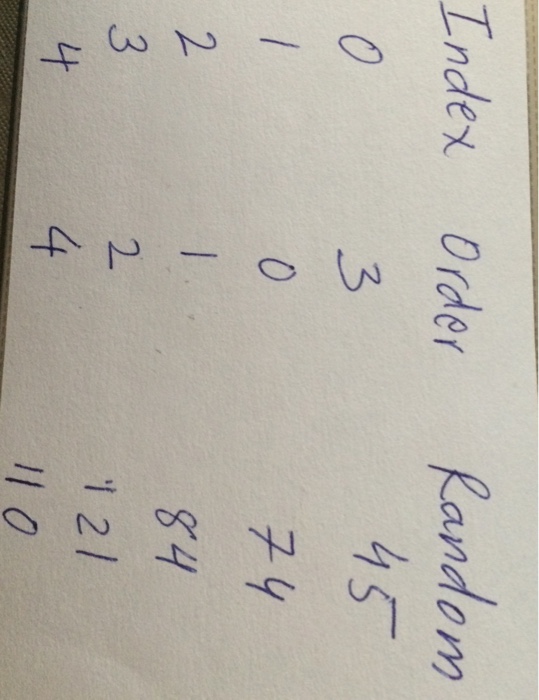 Index Order Random
0 3 45
1 0 74
2 1 84
3 2 121
4 4 110